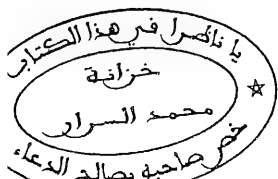 يا ناظرا في هذا الكتاب
خزانة
محمد السرار
خص صاحبه بصالح الدعاء